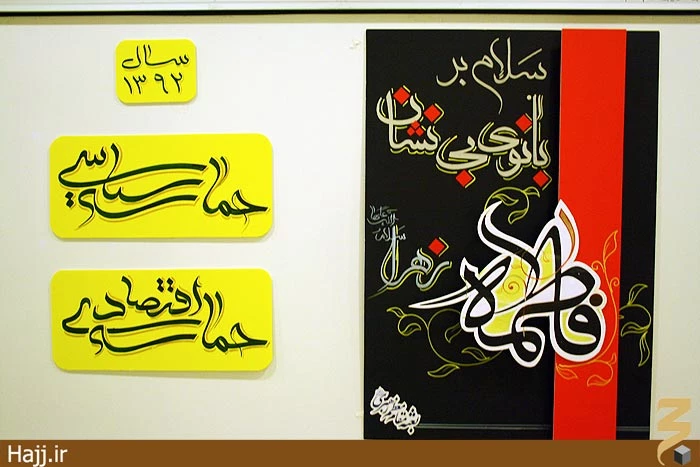 سال
۱۳۹۲
حماسه سیاسی
حماسه اقتصادی
سلام بر
بانوی بی نشان
فاطمه
زهرا
سلام
Hajj.ir